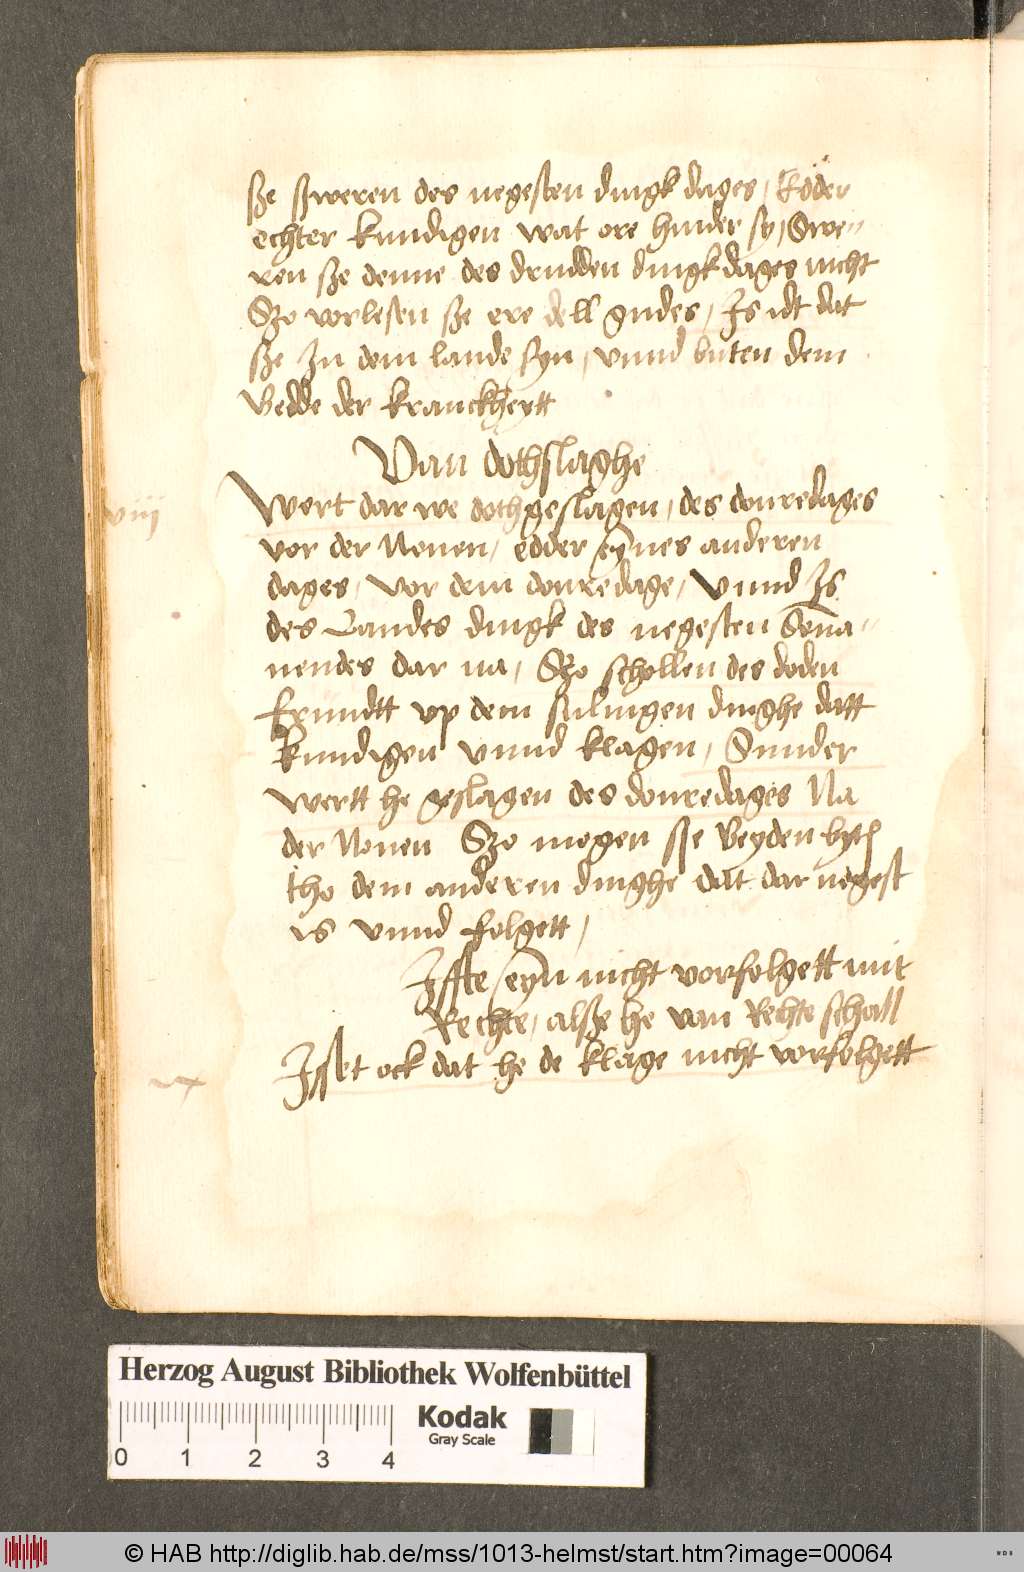 sze szweren des negesten dingk dages, Edder
echter kundigen wat ore hinder sy, Swe-
ren sze denne des drudden dingkdages nicht
Szo vorlesen sze ere dell gudes, Is idt dat
sze In dem lande syn, vnnd buten dem
Bedde der kranckheytt
Van dothslaghe
viij
Wert dar we dothgeslagen, des donredages
vor der Nonen, edder eynes anderen
dages, vor dem donredage, Vnnd Is
des Landes dingk des negesten Sona-
nendes dar na, Szo schollen des doden
frundtt vp dem suluigen dinghe datt
kundigen vnnd klagen, Sunder
wertt he geslagen des donredages Na
der Nonen Szo mogen sze beyden byth
tho dem anderen dinghe dat dar negest
is vnnd folgett,
Iffte eyn nicht vorfolgett mit
Rechte, alsze he van Rechte schall
Isset ock dat he de klage nicht vorfolgett
Herzog August Bibliothek Wolfenbüttel
Kodak
Gray Scale
0 1 2 3 4
© HAB http://diglib.hab.de/mss/1013-helmst/start.htm?image=00064